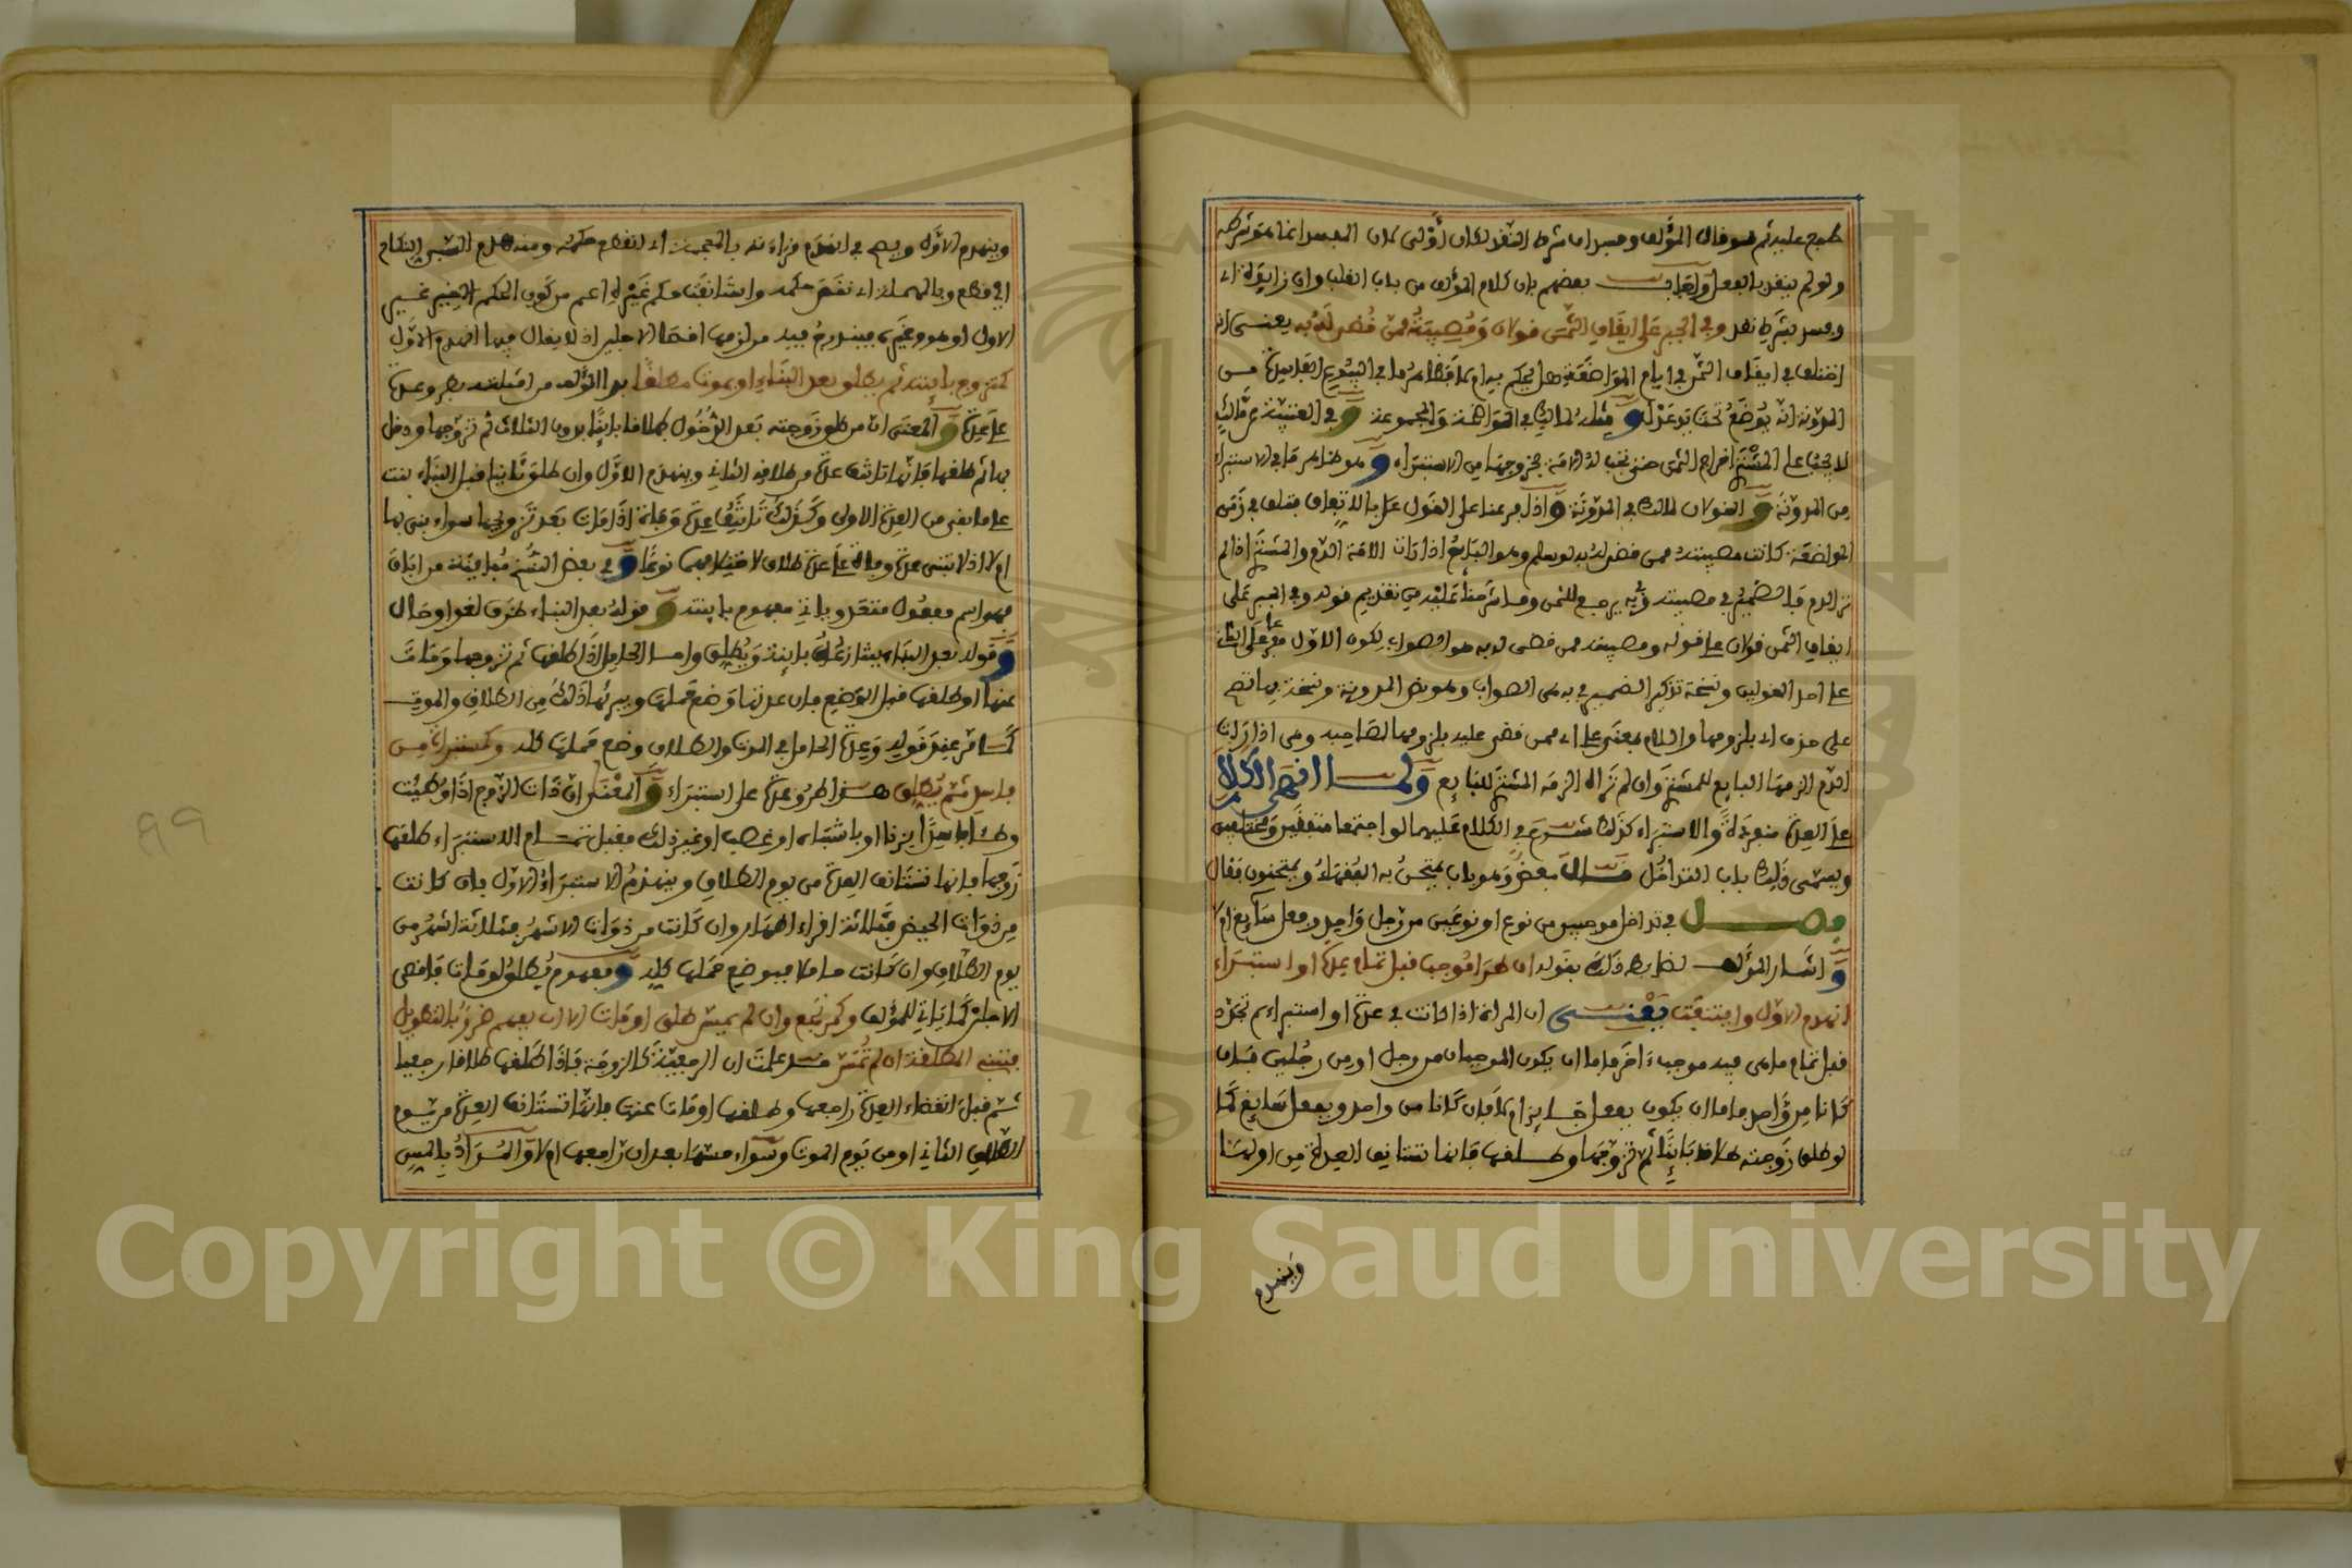 طبع عليه ثم لو قال المؤلف ومسد ان شرط النقد لكان أولى لان المفسد انما هو شرطه
ولو لم ينقد بالفعل واجاب بعضهم بان كلام المؤلف من باب القلب وان زايدة اي
وفسد بشرط نقد وفي الجبر على ايقاف الثمن قولان ومصيبته ممن قضي له به يعني انه
اختلف في ايقاف الثمن في ايام المواضعة هل يحكم به ام لا
المدونة انه يوضع تحت يد عدل و مثله لمالك في الموازية والمجموعة و في العتبية عن مالك
لا يجب على المشتري اخراج الثمن حتى تجب له الامة بخروجها من الاستبراء و هو ظاهر ما في الاستبراء
من المدونة و القولان لمالك في المدونة و اذا فرعنا على القول على بالايقاف فتلف في زمن
المواضعة كانت مصيبته ممن قضي له به لو سلم وهو البايع اذا رات الامة الدم والمشتري اذا لم
تر الدم فالضمير في مصيبته وبه يرجع للثمن وما شرحنا عليه من تقديم قوله وفي الجبر على
ايقاف الثمن قولان على قوله ومصيبته ممن قضي له به هو الصواب ليكون الاول مفرعا على الثاني
على احد القولين ونسخة تذكير الضمير في به هي الصواب وهو نص المدونة ونسخة بها تصح
على حذف اي بلزومها واللام بمعنى على اي ممن قضي عليه بلزومها لصاحبه وهي اذا رات
الدم الزمها البايع للمشتري وان لم تره الزمه المشتري للبايع ولما انقضى الكلام
على العدة منفردة والاستبراء كذلك شرع في الكلام عليهما لو اجتمعا متفقين ومختلفين
ويسمى ذلك باب التداخل قال بعض وهو باب يمتحن به الفقهاء ويمتحنون فقال
فصل في تداخل موجبين من نوع او نوعين من رجل واحد وفعل سايغ ام لا
و اشار المؤلف لضابط ذلك بقوله ان طرا موجب قبل تمام عدة او استبراء
انهدم الاول وايتنفت يعني ان المراة اذا كانت في عدة او استبراء ثم تجدد
قبل تمام ما هي فيه موجب اخر فاما ان يكون الموجبان من رجل او من رجلين فان
كانا من واحد فاما ان يكون بفعل سايغ ام لا فان كانا من واحد وبفعل سايغ كما
لو طلق زوجته طلاقا باينا ثم تزوجها وطلقها فانها تستانف العدة من اولها
وينهدم
وينهدم الاول ويصح في انهدم قراءته بالمعجمة اي انقطع حكمه ومنه هدم السفر النكاح
اي قطع وبالمهملة اي نقض حكمه واستانفت حكم غيره اعم من كون الحكم الغير غير
الاول او هو وغيره فيندرج فيه من لزمها اقصى الاجلين اذ لا يقال فيها انهدم الاول
كمتزوج باينته ثم يطلق بعد البناء او يموت مطلقا بدا المؤلف من امثلته بطرو عدة
على عدة و المعنى ان من طلق زوجته بعد الدخول طلاقا باينا بدون الثلاث ثم تزوجها ودخل
بها ثم طلقها فانها تاتنف عدة من طلاقه الثاني وينهدم الاول وان طلق ثانيا قبل البناء بنت
على ما بقي من العدة الاولى وكذلك تاتنف عدة وفاة اذا مات بعد تزوجها سواء بنى بها
ام لا اذ لا تبنى عدة وفاة على عدة طلاق لاختلافهما نوعا و في بعض النسخ مباينته من ابان
فهو اسم مفعول متعد وياتي مفهوم باينته و قوله بعد البناء ظرف لغو او حال
و قوله بعد البناء يتنازعه باينته ويطلق واما الحامل اذا طلقها ثم تزوجها ومات
عنها او طلقها قبل الوضع فان عدتها وضع حملها ويبريها ذلك من الطلاق والموت
كما مر عند قوله وعدة الحامل في الموت والطلاق وضع حملها كله وكمستبراة من
فاسد ثم يطلق هذا طرو عدة على استبراء و المعنى ان ذات الزوج اذا وطئت
وطئا فاسدا بزنا او باشتباه او غصب او غير ذلك فقبل تمام الاستبراء طلقها
زوجها فانها تستانف العدة من يوم الطلاق وينهدم الاستبراء الاول فان كانت
من ذوات الحيض فثلاثة اقراء اطهار وان كانت من ذوات الاشهر فثلاثة اشهر من
يوم الطلاق وان كانت حاملا فبوضع حملها كله و مفهوم يطلق لو مات فاقصى
الاجلين كما ياتي للمؤلف وكمرتجع وان لم يمس طلق او مات الا ان يفهم ضرر بالتطويل
فتبني المطلقة ان لم تمس قد علمت ان الرجعية كالزوجة فاذا طلقها طلاقا رجعيا
ثم قبل انقضاء العدة راجعها وطلقها او مات عنها فانها تستانف العدة من يوم
الطلاق الثاني او من يوم الموت وسواء مسها بعد ان راجعها ام لا و المراد بالمس